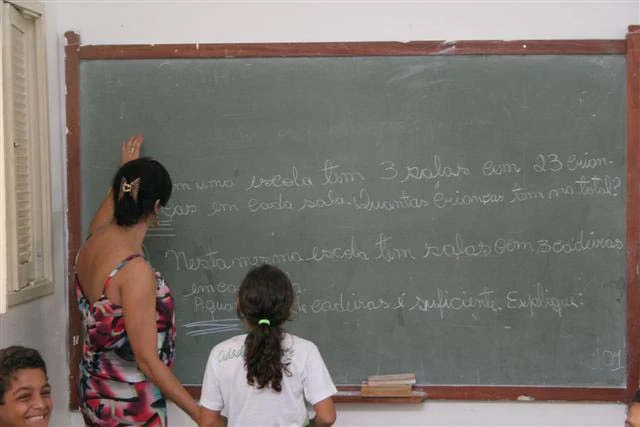 m uma escola tem 3 salas com 23 crian-
ças em cada sala. Quantas crianças tem no total?
Nesta mesma escola tem salas com 3 cadeiras
em ca
A de cadeiras é suficiente. Explique: